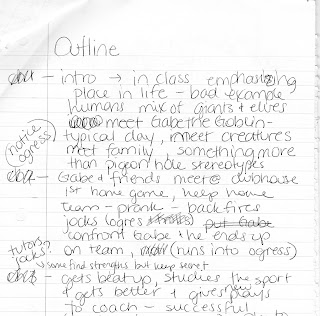 Outline
ch1 - intro → in class emphasizing
place in life - bad example
humans mix of giants & elves
meet Gabe the Goblin -
typical day, meet creatures
(notice ogress) meet family, something more
than pigeon hole stereotypes
ch2 - Gabe & friends meet @ clubhouse
1st home game, help home
team - prank - backfires
jocks (ogres & trolls) put Gabe
confront Gabe & he ends up
on team, (runs into ogress)
tutors jocks? some find strengths but keep secret
ch3 - gets beat up, studies the sport
& gets better & gives new plays
to coach - successful